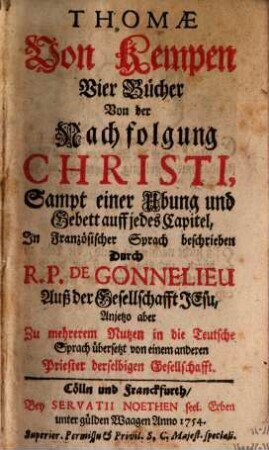 THOMÆ
Von Kempen
Vier Bücher
Von der
Nachfolgung
CHRISTI,
Sampt einer Ubung und
Gebett auff jedes Capitel,
In Französischer Sprach beschrieben
Durch
R.P. DE GONNELIEU
Auß der Gesellschafft JEsu,
Anjetzo aber
Zu mehrerem Nutzen in die Teutsche
Sprach übersetzt von einem anderen
Priester derselbigen Gesellschafft.
Cölln und Franckfurth,
Bey SERVATII NOETHEN seel. Erben
unter gülden Waagen Anno 1754.
Superior. Permissu & Privil. S. C. Majest. speciali.